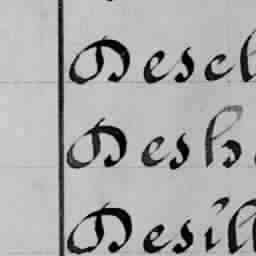 Desch
Desh
Desill